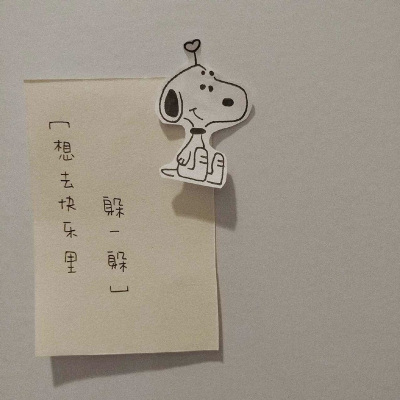 「想去快乐里
躲一躲」